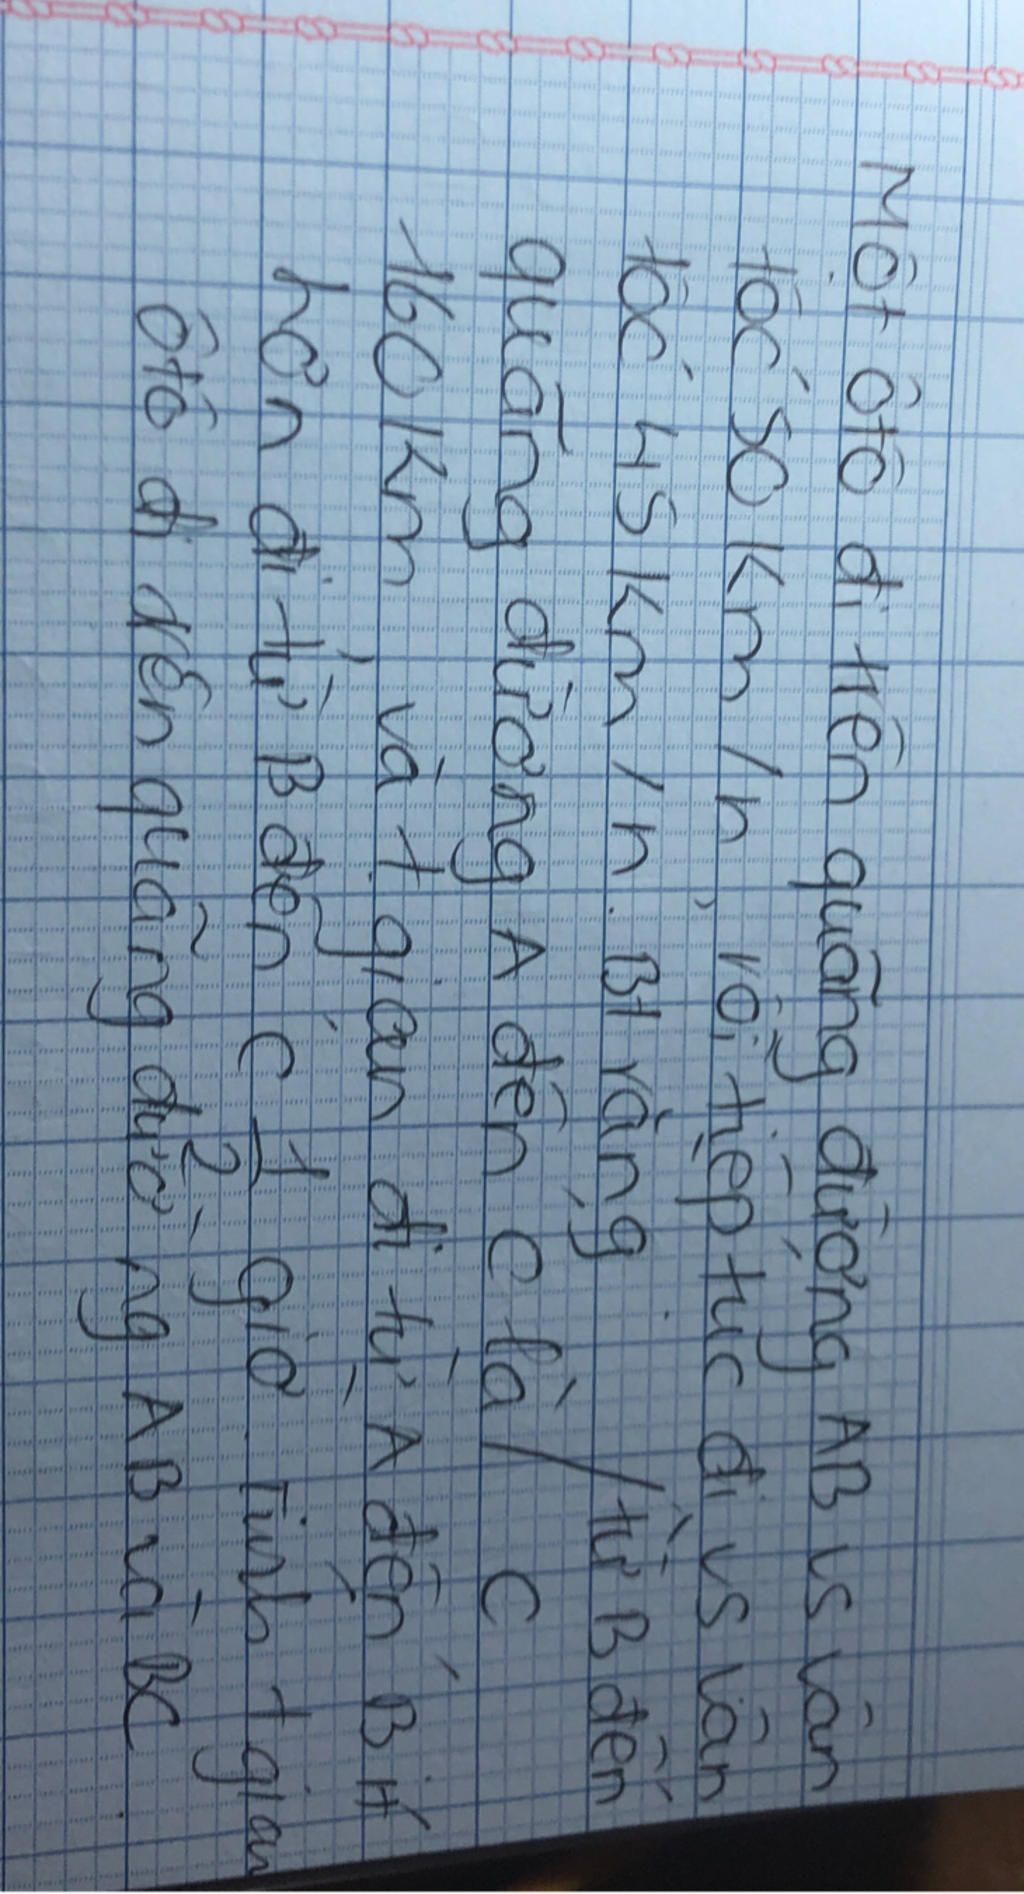 Một ôtô đi trên quãng đường AB vs vận
tốc 50 km/h, rồi tiếp tục đi vs vận
tốc 45 km/h. Bt rằng / từ B đến
quãng đường A đến C là / C
160 km, và t gian đi từ A đến B ít
hơn đi từ B đến C 1/2 giờ. Tính t gian
ôtô đi đến quãng đường AB và BC.